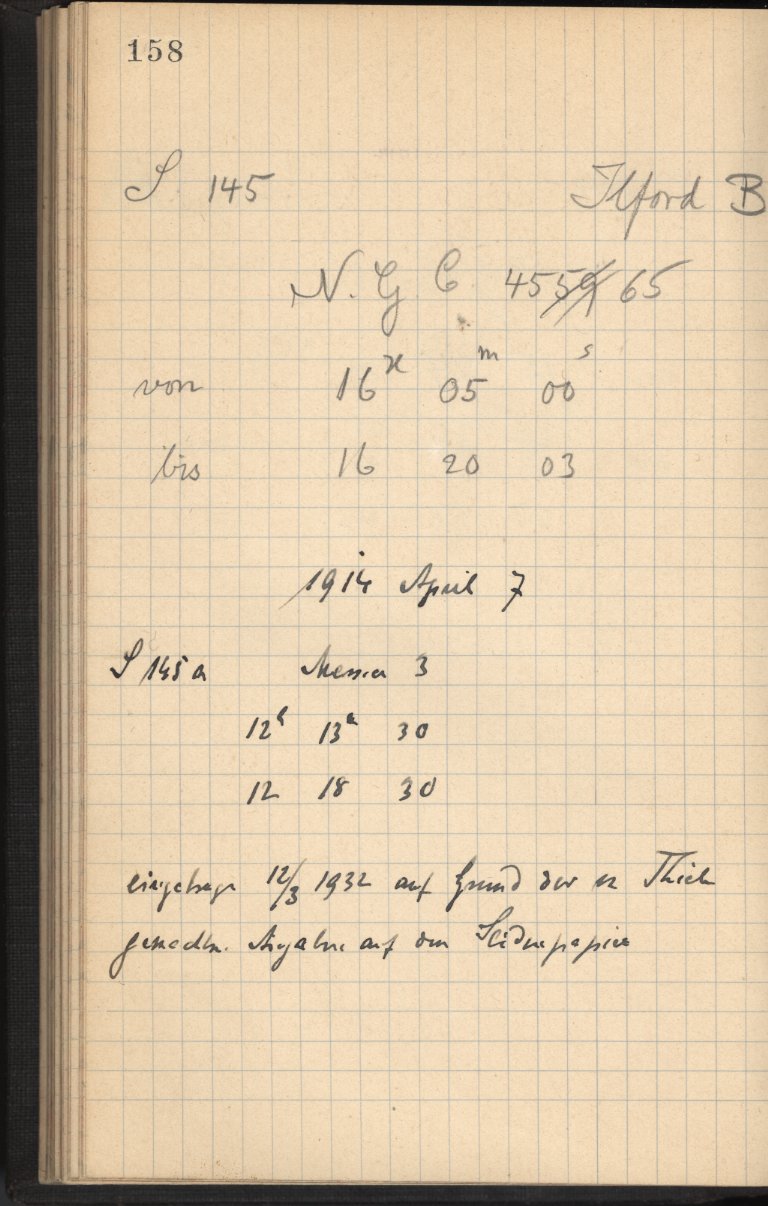 158
S 145 Ilford B
N. G C 4559 65
von 16h 05m 00s
bis 16 20 03
1914 April 7
S 145a Messier 3
12h 13m 30
12 18 30
eingetragen 12/3 1932 auf Grund der v. Thiele
gemachten Angabe auf dem Seidenpapier